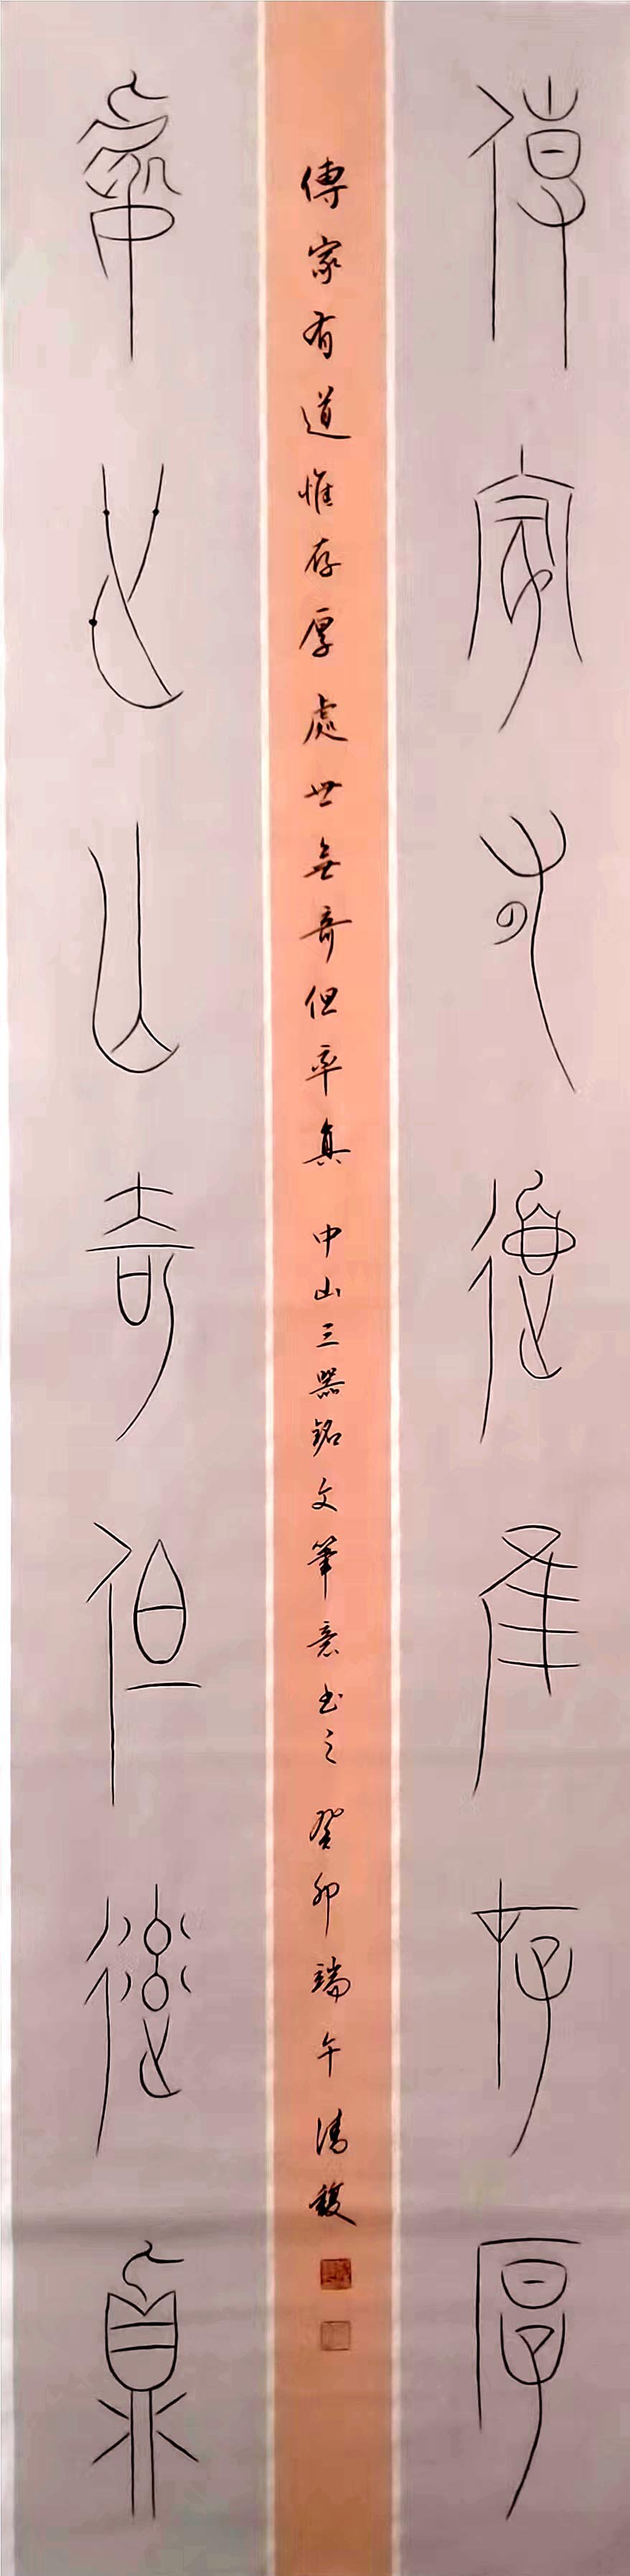 傳家有道惟存厚
傳家有道惟存厚處世無奇但率真 中山三器銘文筆意書之 癸卯端午清馥
處世無奇但率真